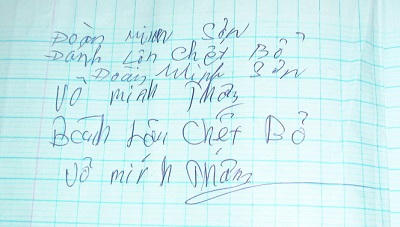 Đoàn minh Sơn
Đánh Lộn chết Bỏ
Đoàn Minh Sơn
Võ minh Thân
Đoàn Lộn Chết Bỏ
Võ minh Thân